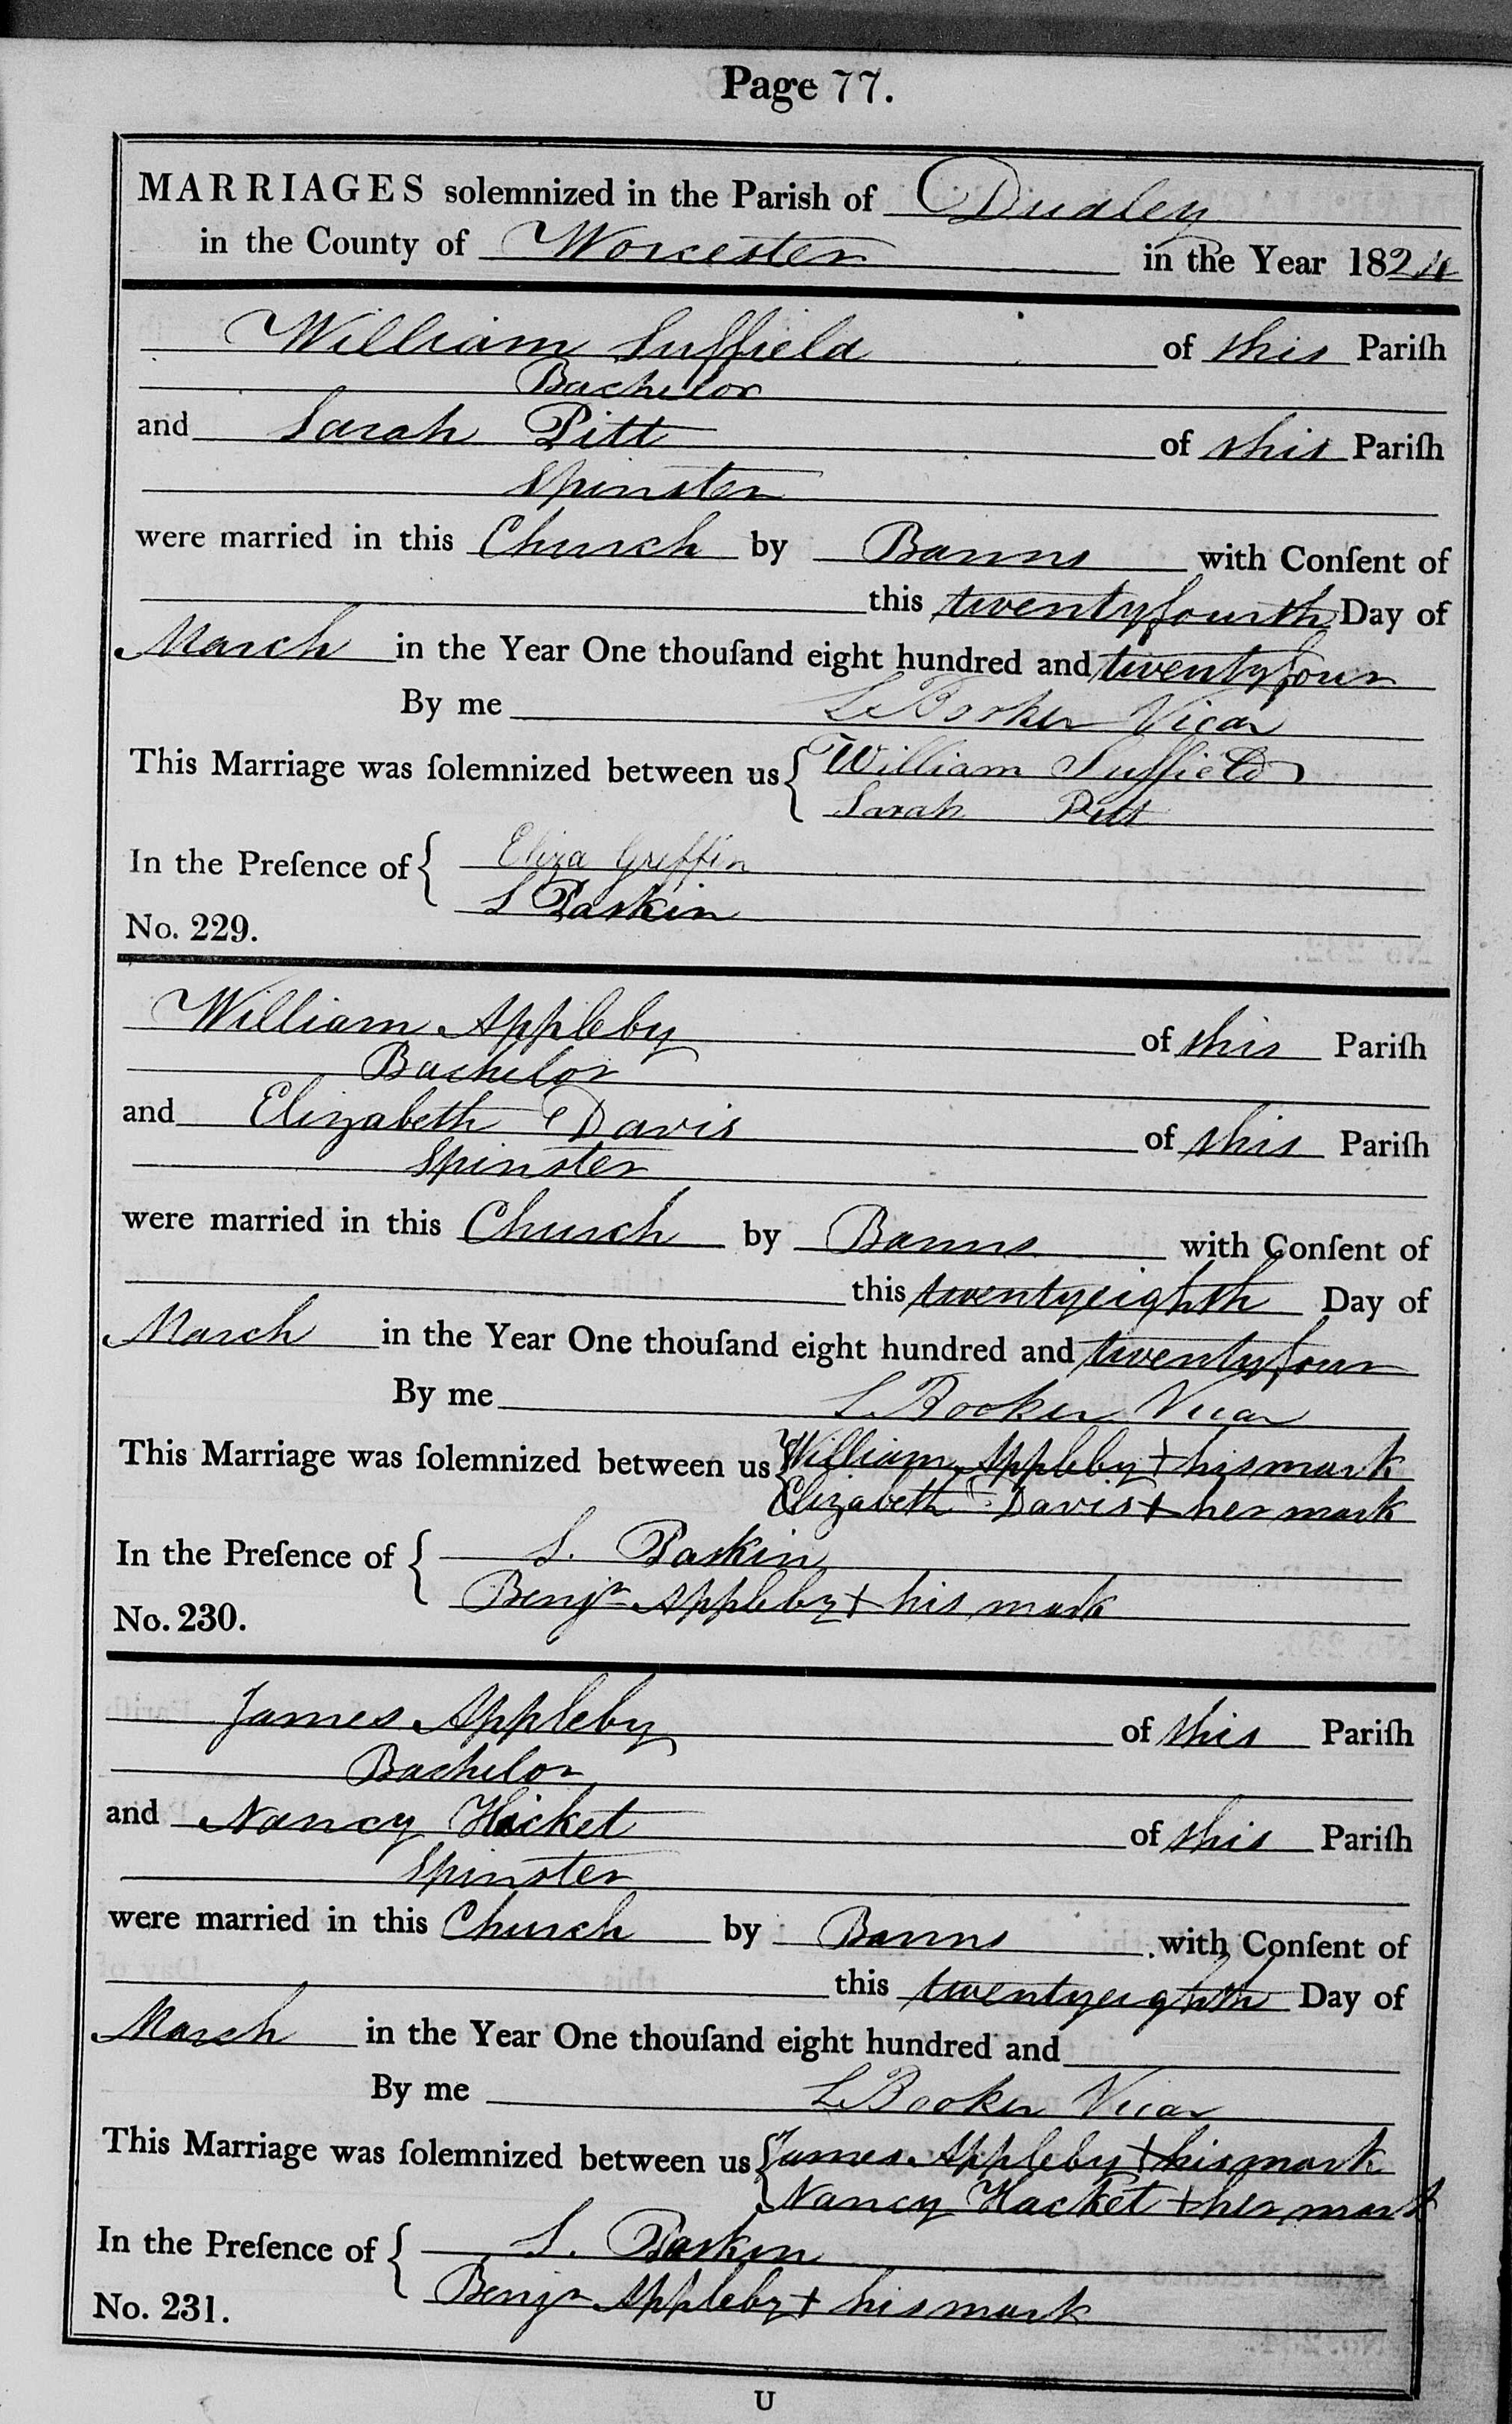 Page 77.
MARRIAGES solemnized in the Parish of Dudley
in the County of Worcester in the Year 1824
William Suffield of this Pariſh
Bachelor
and Sarah Pitt of this Pariſh
Spinster
were married in this Church by Banns with Conſent of
this twentyfourth Day of
March in the Year One thouſand eight hundred and twentyfour
By me L Booker Vicar
This Marriage was ſolemnized between us { William Suffield
Sarah Pitt
In the Preſence of { Eliza Griffin
S Paskin
No. 229.
William Appleby of this Pariſh
Bachelor
and Elizabeth Davis of this Pariſh
Spinster
were married in this Church by Banns with Conſent of
this twentyeighth Day of
March in the Year One thouſand eight hundred and twentyfour
By me L Booker Vicar
This Marriage was ſolemnized between us { William Appleby + his mark
Elizabeth Davis + her mark
In the Preſence of { S. Paskin
Benjn Appleby + his mark
No. 230.
James Appleby of this Pariſh
Bachelor
and Nancy Hacket of this Pariſh
Spinster
were married in this Church by Banns with Conſent of
this twentyeighth Day of
March in the Year One thouſand eight hundred and
By me L Booker Vicar
This Marriage was ſolemnized between us { James Appleby + his mark
Nancy Hacket + her mark
In the Preſence of { S. Paskin
Benjn Appleby + his mark
No. 231.
U